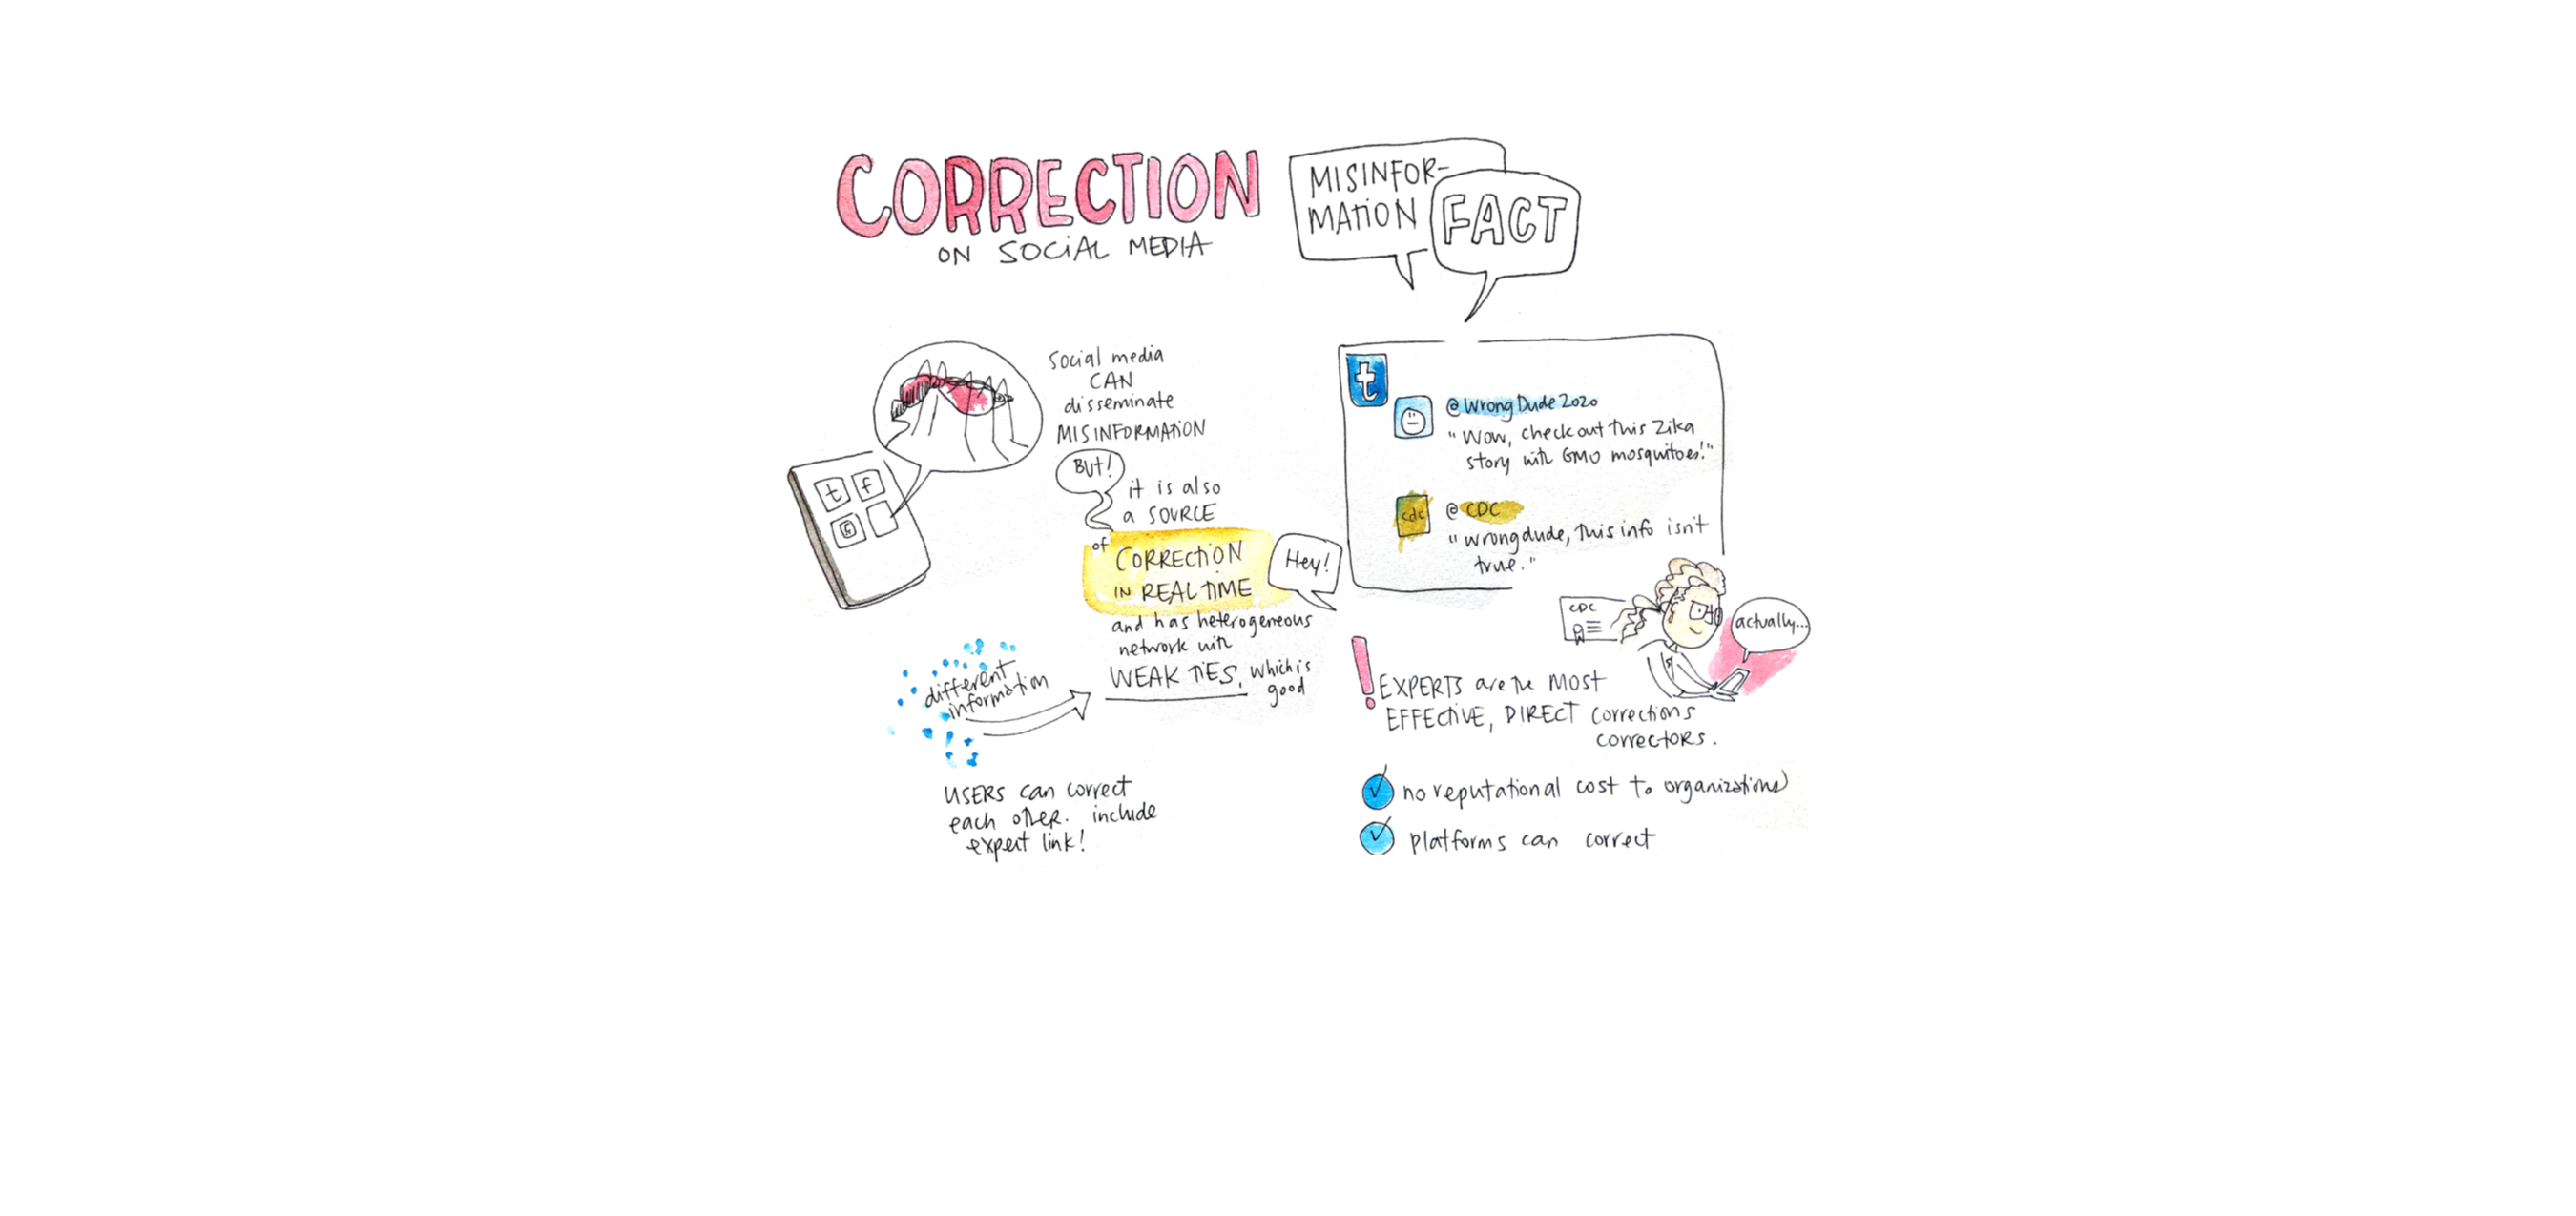 CORRECTION
ON SOCIAL MEDIA
MISINFOR-
MATION
FACT
social media
CAN
disseminate
MISINFORMATION
BUT!
it is also
a SOURCE
of
CORRECTION
IN REAL TIME
Hey!
and has heterogeneous
network with
WEAK TIES, which is
good
t f
different
information
USERS can correct
each other. include
expert link!
t
@WrongDude2020
"Wow, check out this Zika
story with GMO mosquitoes!"
cdc
@CDC
"wrongdude, this info isn't
true."
CDC
actually...
! EXPERTS are the MOST
EFFECTIVE, DIRECT corrections
correctors.
no reputational cost to organizations
platforms can correct